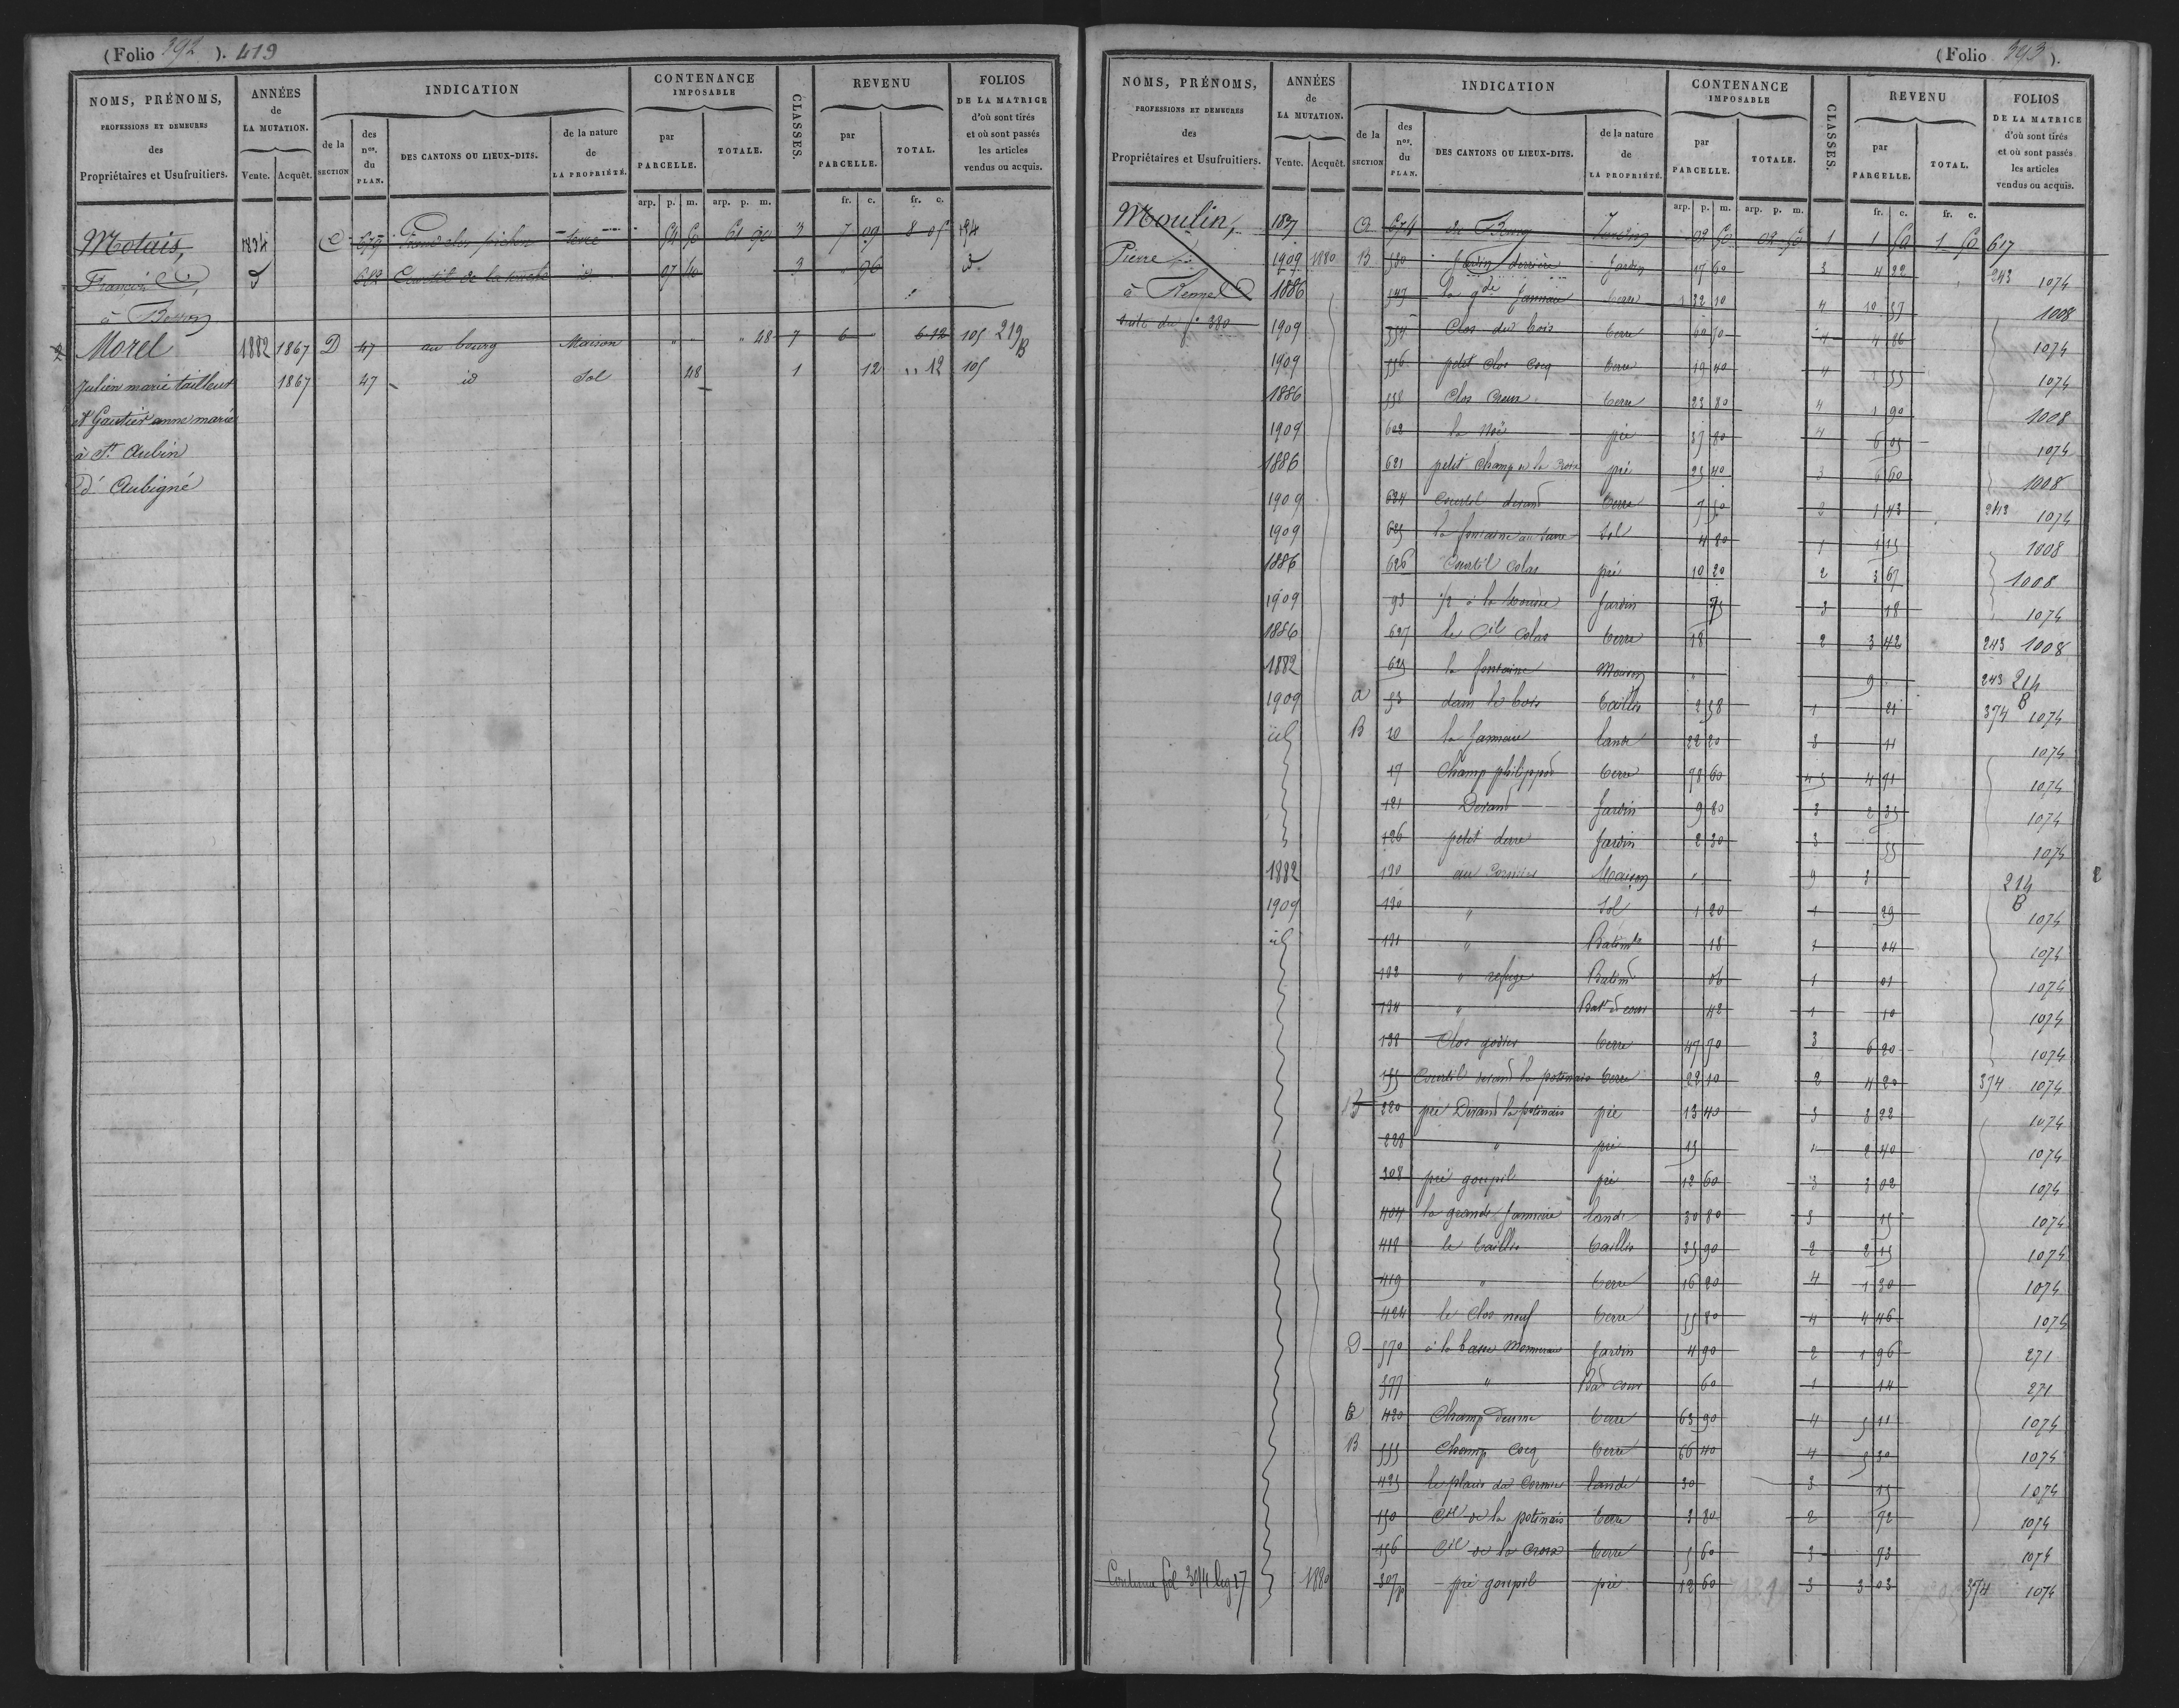 (Folio 392 ). 419
NOMS, PRÉNOMS,
PROFESSIONS ET DEMEURES
des
Propriétaires et Usufruitiers.
ANNÉES
de
LA MUTATION.
Vente. Acquêt.
INDICATION
de la
SECTION
des
nos.
du
PLAN.
DES CANTONS OU LIEUX-DITS.
de la nature
de
LA PROPRIÉTÉ.
CONTENANCE
IMPOSABLE
par
PARCELLE.
TOTALE.
CLASSES.
REVENU
par
PARCELLE.
TOTAL.
FOLIOS
DE LA MATRICE
d'où sont tirés
et où sont passés
les articles
vendus ou acquis.
arp. p. m. arp. p. m. fr. c. fr. c.
Motais, 1834 C 679 clos pichon terre 54 50 61 90 3 7 09 8 05
François, 682 Courtil de la touche id 97 40 3 " 96 d
à
Morel 1882 1867 D 47 au bourg Maison " " 48 7 6 6 12 105 219 B
Julien marie tailleur 1867 47 id Sol 48 1 12 " 12 105
et Gautier anne marie
à St Aubin
d'Aubigné
(Folio 393 ).
NOMS, PRÉNOMS,
PROFESSIONS ET DEMEURES
des
Propriétaires et Usufruitiers.
ANNÉES
de
LA MUTATION.
Vente. Acquêt.
INDICATION
de la
SECTION
des
nos.
du
PLAN.
DES CANTONS OU LIEUX-DITS.
de la nature
de
LA PROPRIÉTÉ.
CONTENANCE
IMPOSABLE
par
PARCELLE.
TOTALE.
CLASSES.
REVENU
par
PARCELLE.
TOTAL.
FOLIOS
DE LA MATRICE
d'où sont tirés
et où sont passés
les articles
vendus ou acquis.
arp. p. m. arp. p. m. fr. c. fr. c.
Moulin, 1837 674 Jardin 02 50 02 50 1 1 50 1 50 617
Pierre 1909 1880 B 530 Jardin derrière Jardin 17 60 3 4 22 243 1074
à 1886 547 la gde Jannaie terre 1 32 10 4 10 57 1008
suite du fo 380 1909 554 Clos du bois terre 60 70 4 4 86 1074
1909 556 petit clos Cocq terre 19 40 4 1 55 1074
1886 558 Clos Creux terre 23 80 4 1 90 1008
1909 602 la Noë pré 37 80 4 6 05 1074
1886 621 petit champ de la Croix pré 25 40 3 6 60 1008
1909 624 Courtil devant terre 7 50 2 1 43 243 1074
1909 625 la fontaine Sol 4 80 1 1 15 1008
1886 626 Courtil Colas pré 10 20 2 3 67 1008
1909 93 1/2 à la Jardin 75 3 18 1074
1886 627 le Cil Colas terre 18 2 3 42 243 1008
1882 625 la fontaine Maison " 9 243 214 B
1909 a 53 dans le bois taillis 2 58 1 21 374 1074
id B 10 la Jannaie lande 22 20 3 11 1074
17 Champ philippot terre 78 60 4 5 4 91 1074
121 Devant Jardin 9 80 3 2 35 1074
126 petit derre Jardin 2 30 3 55 1074
1882 130 au Cormier Maison " 9 3 214 B
1909 130 " Sol 1 20 1 29 1074
id 131 " Batimts 18 1 04 1074
132 " refuge Batimt 06 1 01 1074
134 " Bat et cour 42 1 10 1074
138 Clos godier terre 47 70 3 6 20 1074
155 Courtil devant la potinais terre 22 10 2 4 20 374 1074
220 pré Devant la potinais pré 13 40 3 3 22 1074
228 " pré 15 1 2 40 1074
308 pré goupil pré 12 60 3 3 02 1074
404 la grande Jannaie lande 30 80 3 15 1074
418 le taillis taillis 35 90 2 2 15 1074
419 " terre 16 20 4 1 30 1074
424 le clos neuf terre 55 80 4 4 46 1074
D 570 à la basse Jardin 4 90 2 1 96 271
577 " Bat cour 60 1 14 271
B 420 Champ terre 63 90 4 5 11 1074
B 555 Champ Cocq terre 66 40 4 5 30 1074
425 le placis du Cormier lande 30 3 15 1074
150 Cil de la potinais terre 3 80 2 72 1074
156 Cil de la Croix terre 5 60 3 73 1074
Continue fol 394 lig 17 1880 307p pré goupil pré 12 60 3 3 03 374 1074